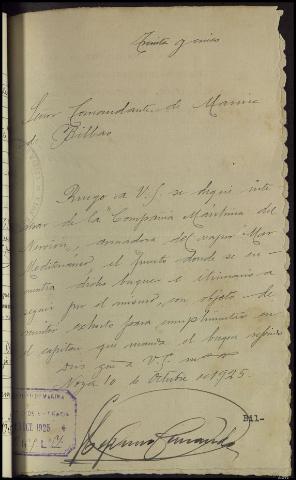 Treinta y cinco
Señor Comandante de Marina
de Bilbao
Ruego a V.S. se digne inte-
resar de la "Compañia Maritima del
Nervion", armadora del vapor "Mar
Mediterráneo" el punto donde se en-
cuentra dicho buque e itinerario a
seguir por el mismo, con objeto de
remitir exhorto para cumplimentar en
el capitan que manda el buque referido
Dios gue a V.S. m
Noya 10 de Octubre de 1925.
Bil-
MARINA
OCT. 1925